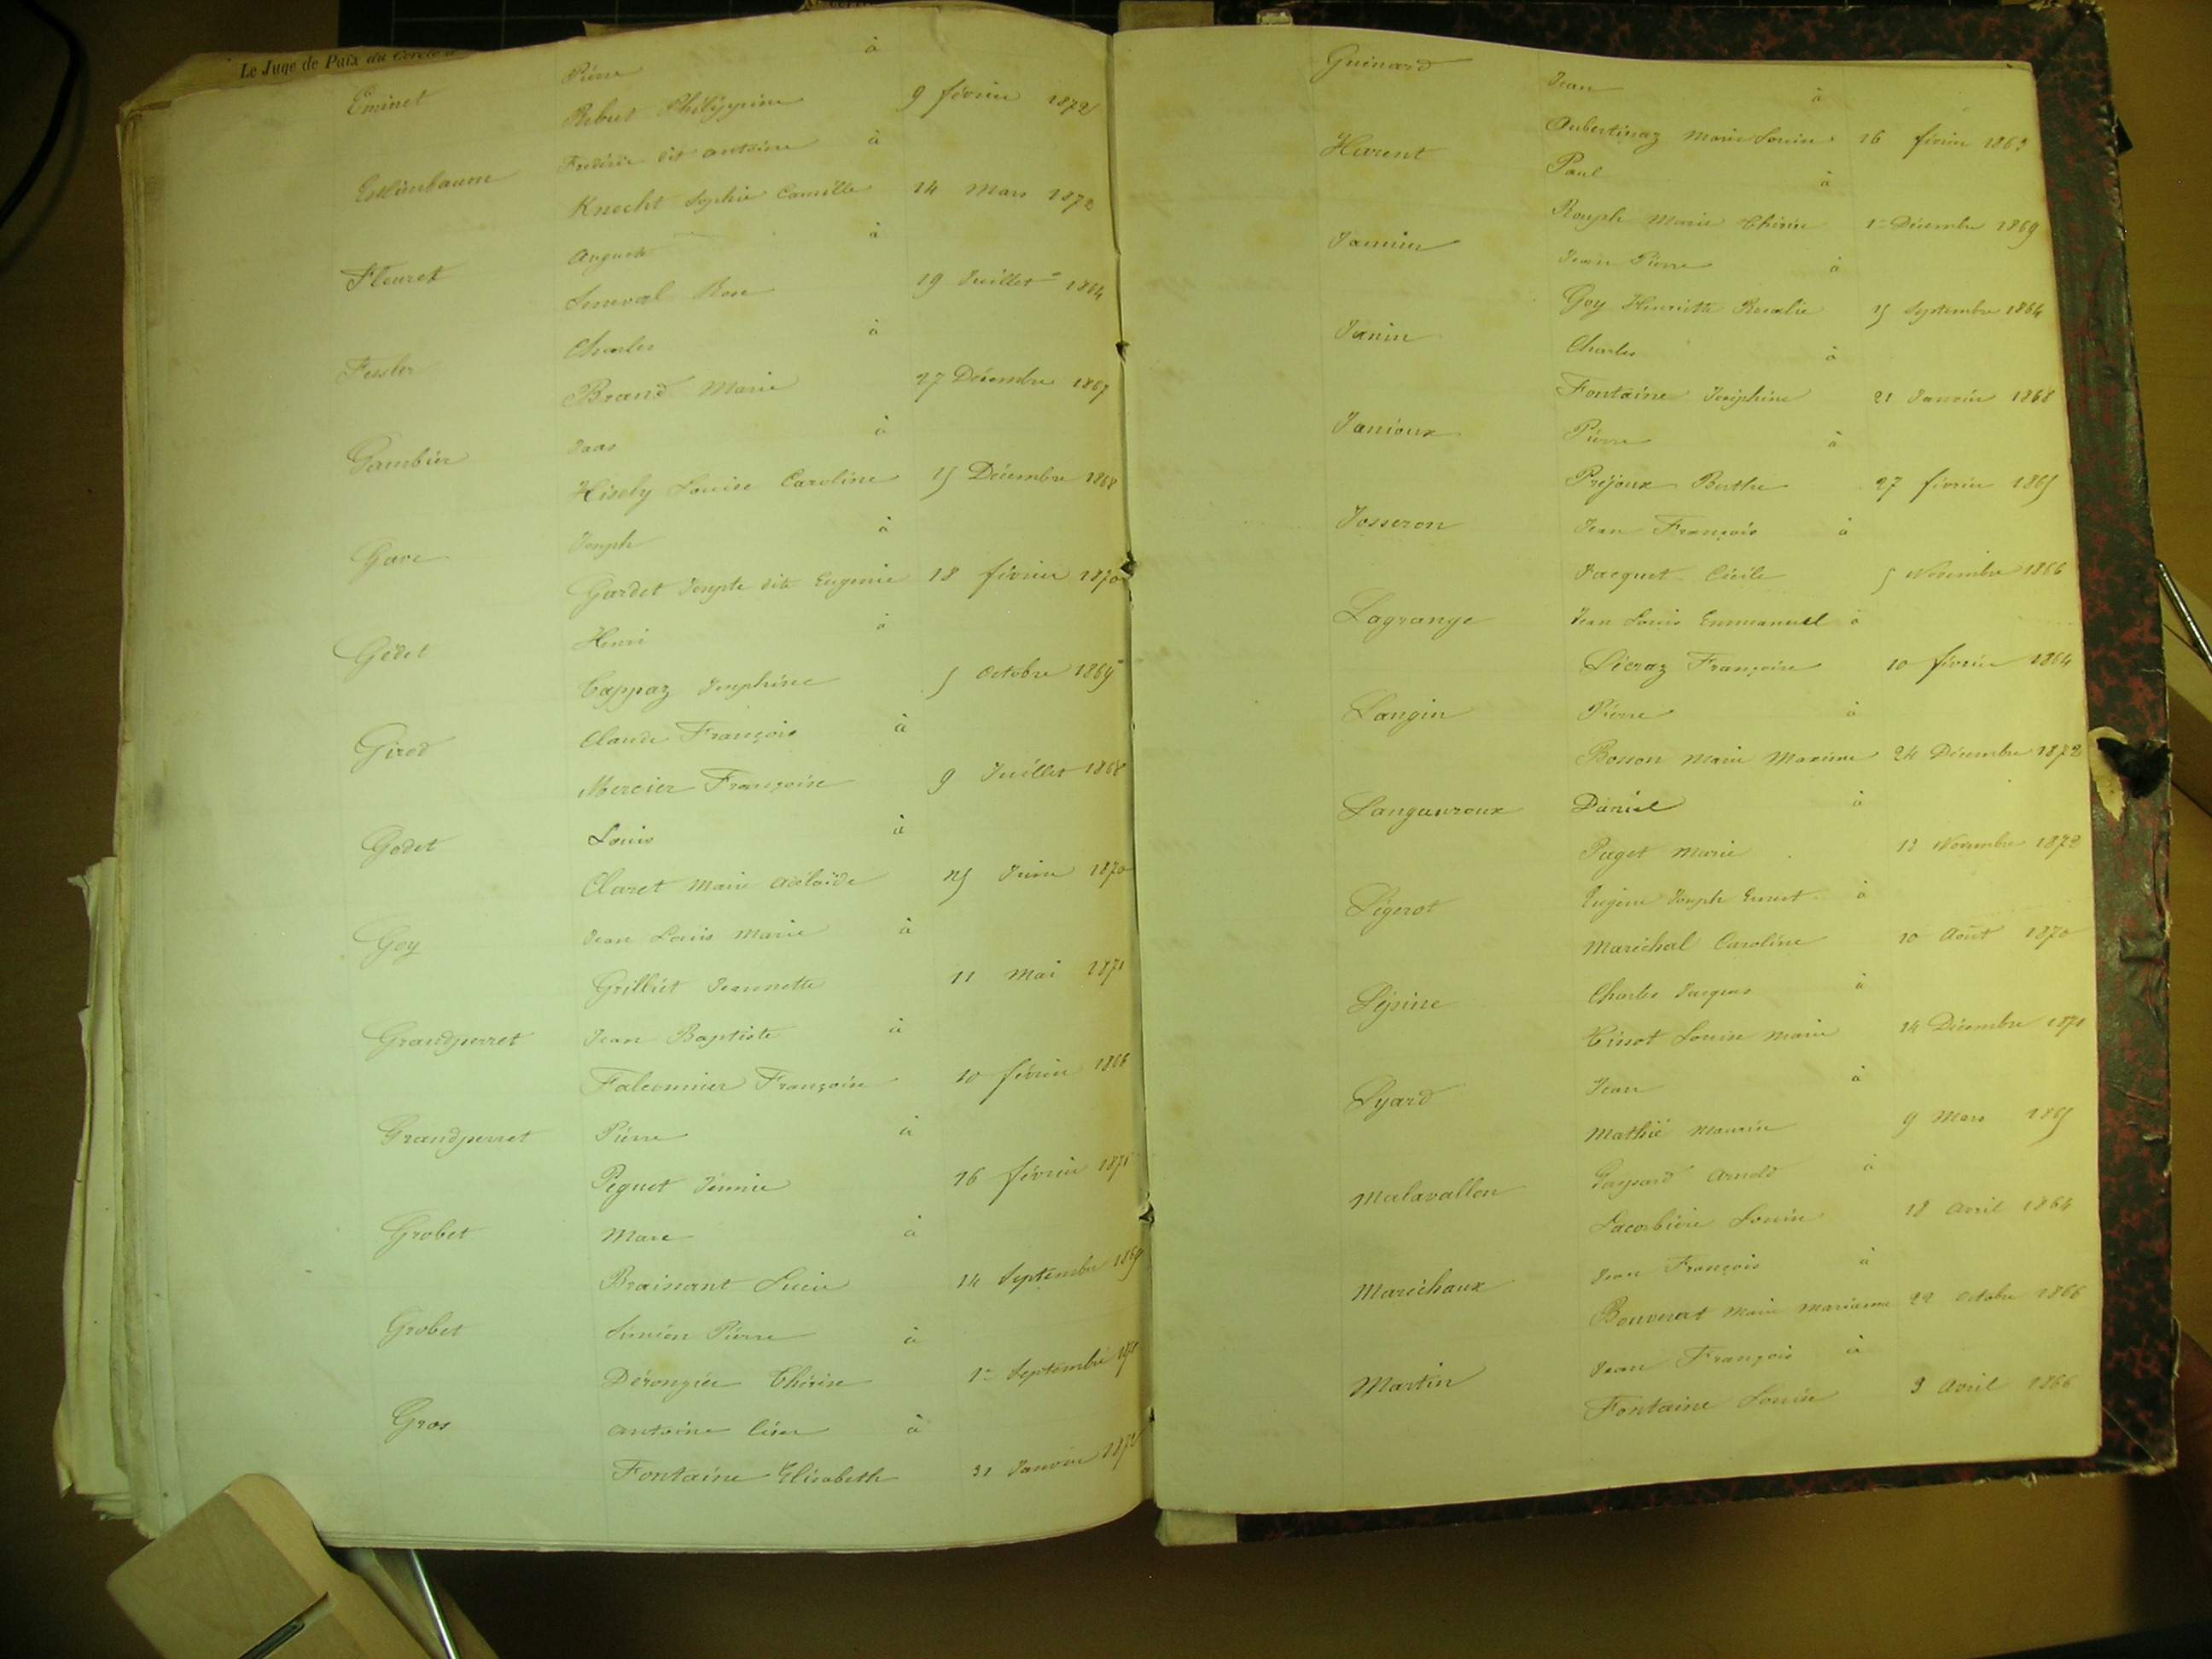 Le Juge de Paix du Cercle d
Eminet Pierre à
Rebut Philippine 9 février 1872
Frédéric dit Antoine à
Knecht Sophie Camille 14 Mars 1872
Fleuret Auguste à
Rose 19 Juillet 1864
Fessler Charles à
Brand Marie 27 Décembre 1867
Gambier Isaac à
Hisely Louise Caroline 15 Décembre 1868
Gave Joseph à
Gardet Josepte dite Eugenie 18 février 1870
Gédet Henri à
Cappaz Josephine 5 Octobre 1869
Girod Claude François à
Mercier Françoise 9 Juillet 1868
Godet Louis à
Claret Marie Adélaïde 25 Juin 1870
Goy Jean Louis Marie à
Grilliet Jeannette 11 Mai 1871
Grandperret Jean Baptiste à
Falconnier Françoise 10 février 1866
Grandperret Pierre à
Péguet Jennie 16 février 1871
Grobet Marc à
Braissant Lucie 14 Septembre 1869
Grobet Siméon Pierre à
Thérèse 1er Septembre
Gros Antoine César à
Fontaine Elisabeth 31 Janvier 1872
Guinard Jean à
Aubertinaz Marie Louise 16 février 1863
Harent Paul à
Rouph Marie Thérèse 1er Décembre 1869
Jannin Jean Pierre à
Goy Henriette Rosalie 15 Septembre 1864
Janin Charles à
Fontaine Joséphine 21 Janvier 1868
Janioux Pierre à
Préjoux Berthe 27 février 1865
Josseron Jean François à
Jacquet Cécile 5 Novembre 1866
Lagrange Jean Louis Emmanuel à
Décraz Françoise 10 février 1864
Langin Pierre à
Bosson Marie Maxime 24 Décembre 1872
Langauroux Daniel à
Puget Marie 13 Novembre 1872
Légerot Eugène Joseph Ernest à
Maréchal Caroline 10 Août 1870
Lépine Charles Jacques à
Tissot Louise Marie 14 Décembre 1871
Lyard Jean à
Mathié Maurise 9 Mars 1865
Malavallon Gaspard Arnold à
Lacorbière Louise 18 Avril 1864
Maréchaux Jean François à
Bouverat Marie Marianne 22 Octobre 1866
Martin Jean François à
Fontaine Louise 3 Avril 1866